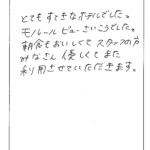 とてもすてきなホテルでした。
モノレールビューさいこうでした。
朝食もおいしくて スタッフの方
みなさん 優しくて また
利用させていただきます。